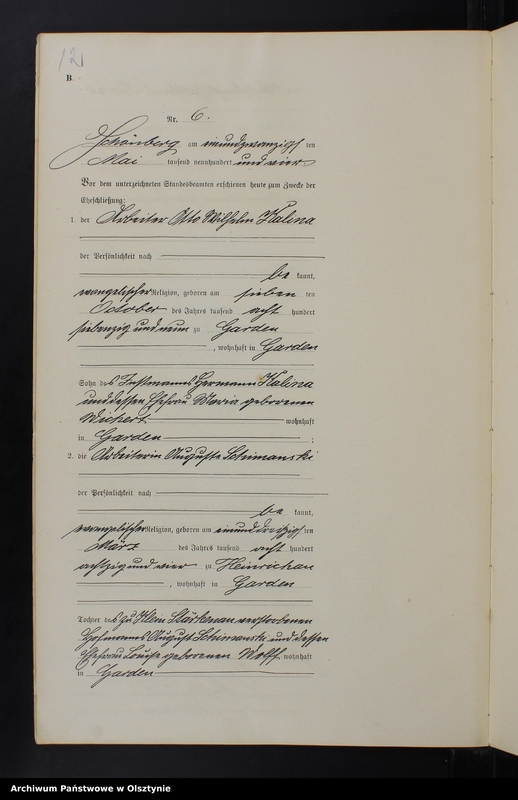 12
B.
Nr. 6.
Schönberg am einundzwanzigs ten
Mai tausend neunhundert und vier.
Vor dem unterzeichneten Standesbeamten erschienen heute zum Zwecke der
Eheschließung:
1. der Arbeiter Otto Wilhelm Kalina
der Persönlichkeit nach
be kannt,
evangelischer Religion, geboren am sieben ten
October des Jahres tausend acht hundert
siebenzig und neun zu Garden
, wohnhaft in Garden
Sohn des Instmanns Hermann Kalina
und dessen Ehefrau Maria geborenen
Wichert wohnhaft
in Garden ;
2. die Arbeiterin Auguste Schimanski
der Persönlichkeit nach
be kannt,
evangelischer Religion, geboren am einunddreißigs ten
März des Jahres tausend acht hundert
achtzig und vier zu Heinrichau
, wohnhaft in Garden
Tochter des zu Klein Stärkenau verstorbenen
Hofmanns August Schimanski und dessen
Ehefrau Louise geborenen Wolff wohnhaft
in Garden
Archiwum Państwowe w Olsztynie